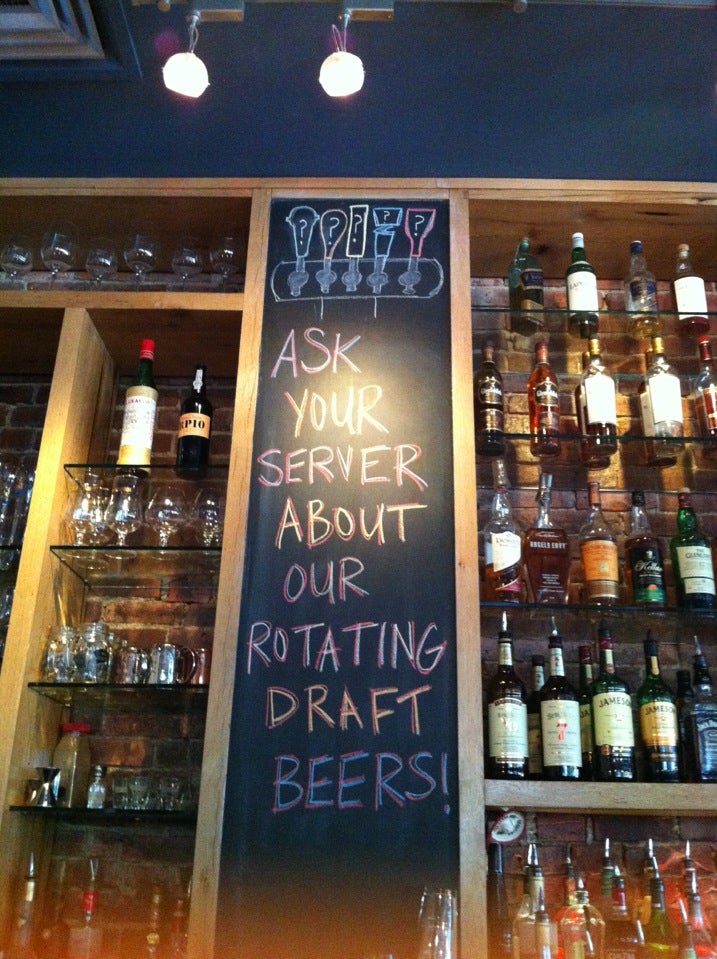 ? ? ? ? ?
ASK
YOUR
SERVER
ABOUT
OUR
ROTATING
DRAFT
BEERS!
ANGEL'S ENVY
JAMESON
JAMESON
7